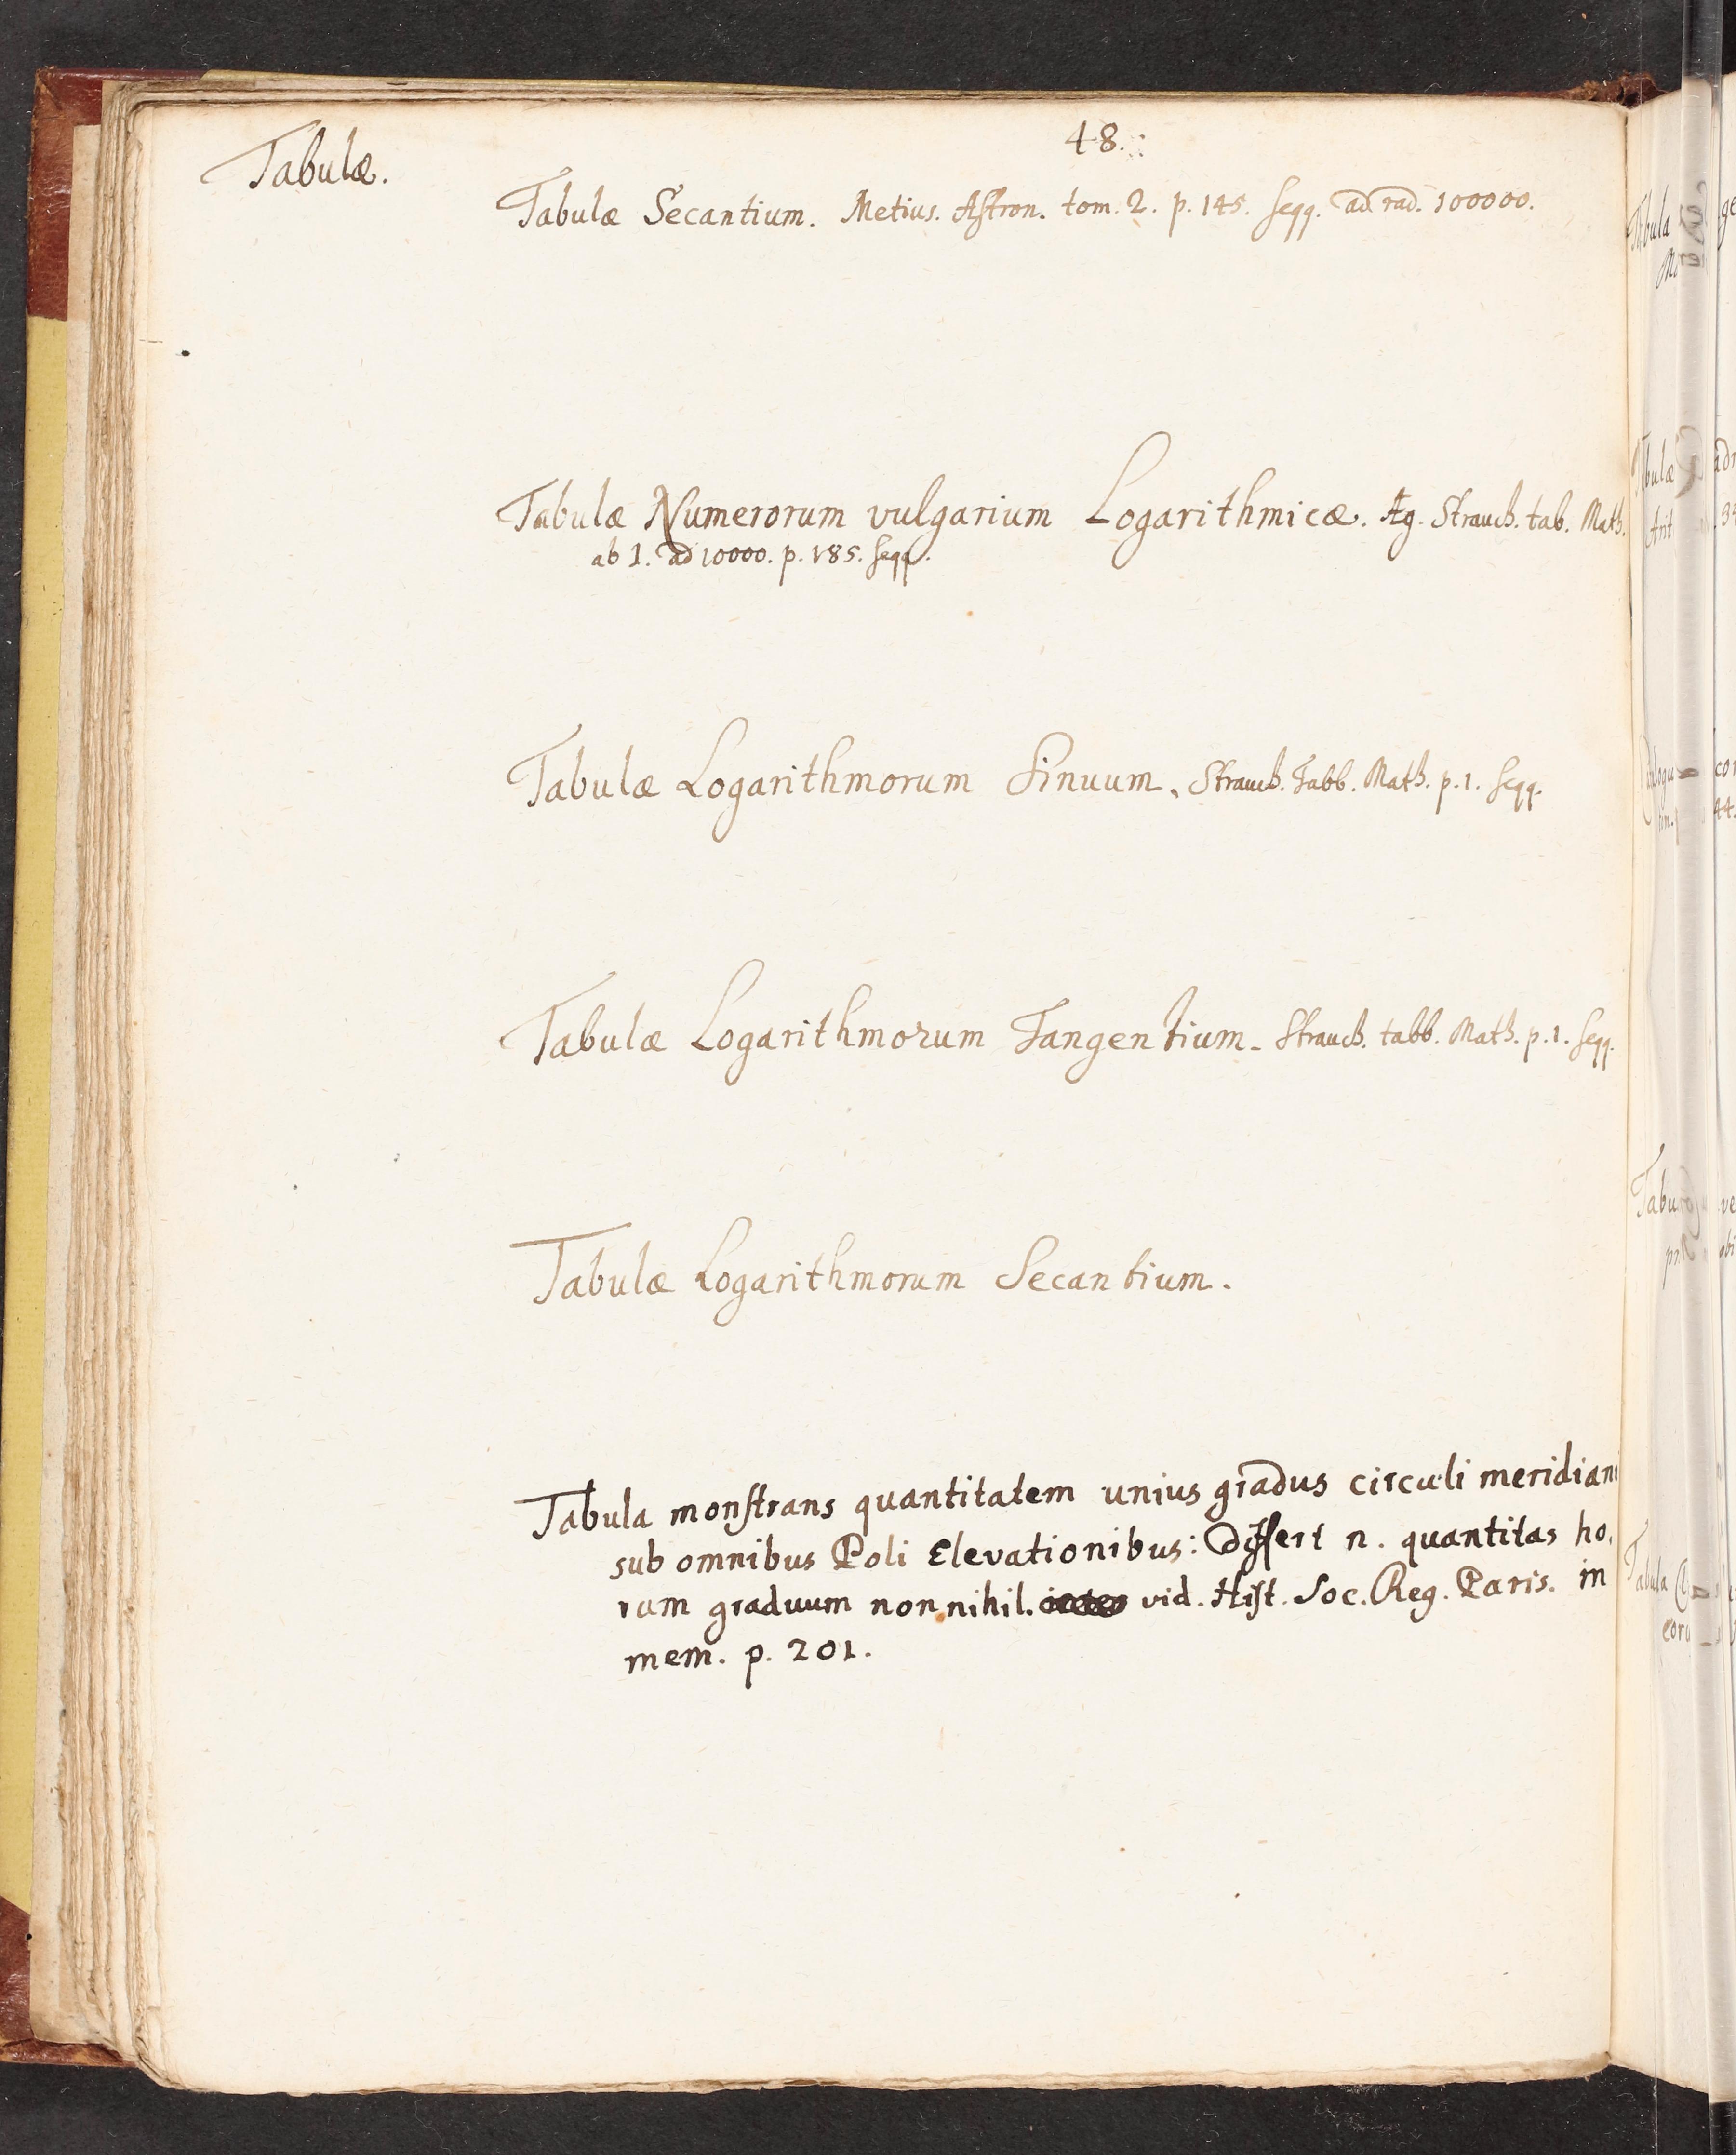 48.
Tabulæ.
Tabulæ Secantium. Metius. Astron. tom. 2. p. 145. seqq. ad rad. 100000.
Tabulæ Numerorum vulgarium Logarithmicæ. Æg. Strauch. tab. Math.
ab 1. ad 10000. p. 185. seqq.
Tabulæ Logarithmorum Sinuum. Strauch. Tabb. Math. p. 1. seqq.
Tabulæ Logarithmorum Tangentium. Strauch. tabb. Math. p. 1. seqq.
Tabulæ Logarithmorum Secantium.
Tabula monstrans quantitatem unius gradus circuli meridiani
sub omnibus Poli Elevationibus: Differt n. quantitas ho,
rum graduum nonnihil. vid. Hist. Soc. Reg. Paris. in
mem. p. 201.